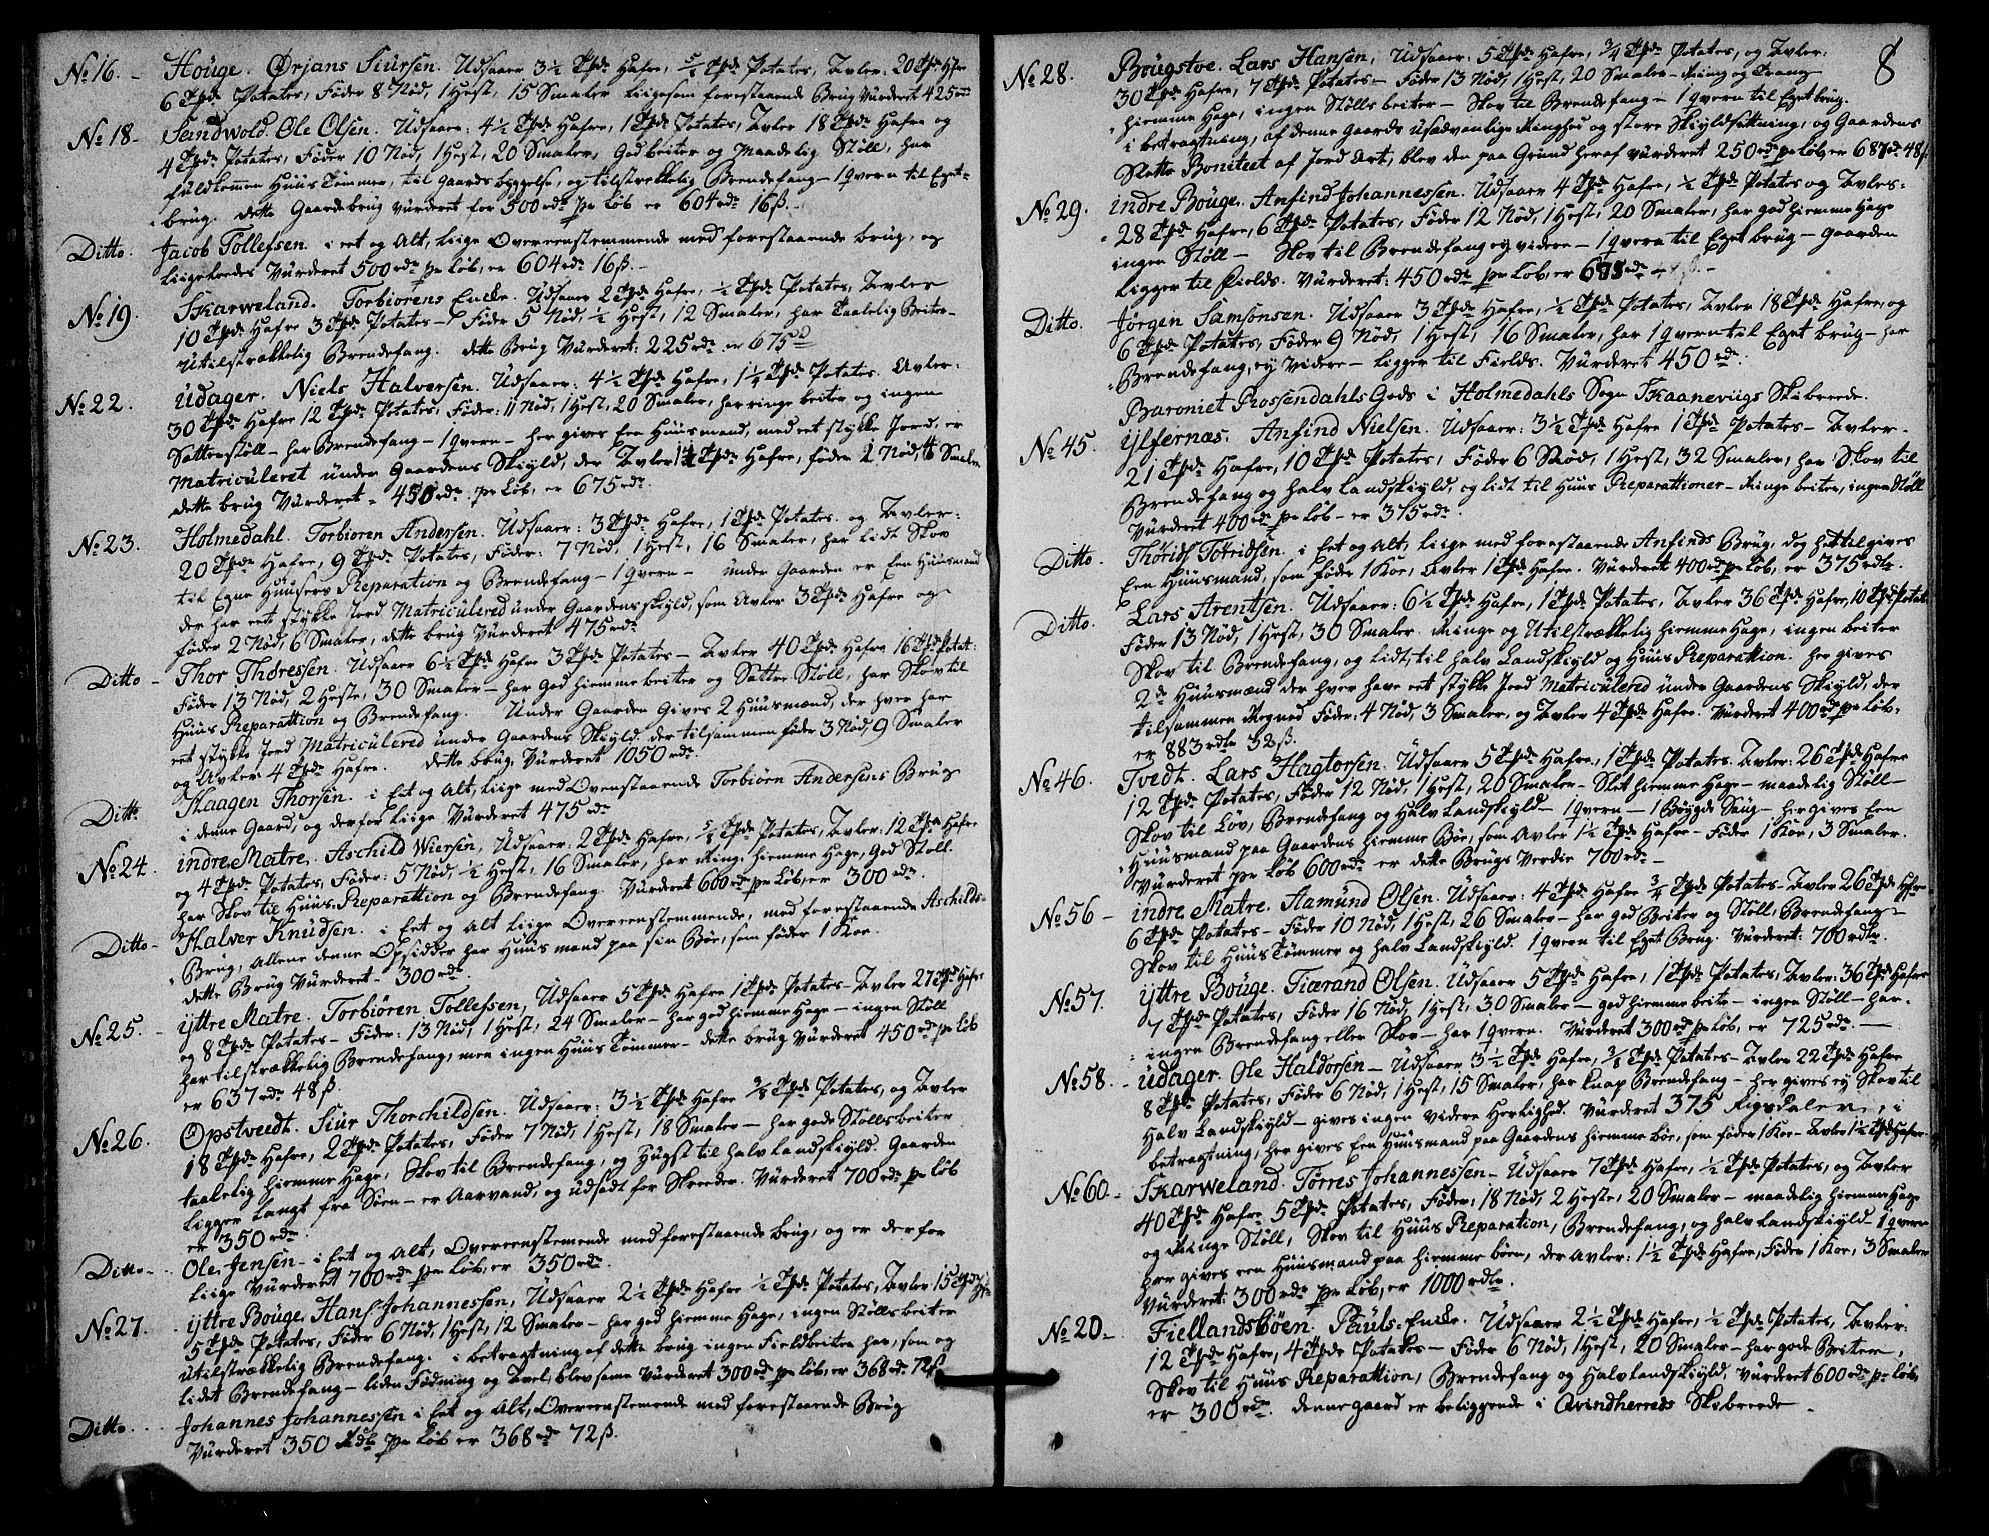 No 16. - Houge. Ørjans Siursen. Udsaaer 3½ Tpde Hafre, 5/4 Tpde Potates, Avler: 20 Tpde Hfre
6 Tpde Potates, Føder 8 Nød, 1 Hest, 15 Smaler liigesom forestaaende Brug Vurderet 425
No 18 - Sandwold. Ole Olsen. Udsaaer: 4½ Tpde Hafre, 1 Tpde Potates, Avler 18 Tpde Hafre og
4 Tpde Potates, Føder 10 Nød, 1 Hest, 20 Smaler, God beiter og Maadelig Støll, har
fuldkommen Huus Tømmer, til Gaards byggelse, og tilstrekkelig Brendefang - 1 qvern til Eget-
brug. dette Gaardebrug Vurderet for 500 rdr pr Løb er 604 rdr 16 ß. -
Ditto. Jacob Tollefsen. i eet og Alt, liige Overeenstemmende med forestaaende brug, og
liigeledes Vurderet 500 rdr pr Løb, er 604 rdr 16 ß. -
No 19. Skarweland. Torbiorens Encke. Udsaaer 2 Tpde Hafre, ½ Tpde Potates, Avler
10 Tpde Hafre 3 Tpde Potates - Føder 5 Nød, ½ Hest, 12 Smaler, har Taalelig Beiter -
Utilstrækkelig Brendefang. dette Brug Vurderet: 225 rdr er 675
No 22. Udager. Niels Halversen. Udsaaer: 4½ Tpde Hafre, 1¼ Tpde Potates. Avler:
30 Tpde Hafre 12 Tpde Potates, Føder: 11 Nød, 1 Hest, 20 Smaler, har ringe beiter og ingen
Satterstøll - har Brendefang - 1 qvern - her gives Een Huusmand, med eet stykke Jord, er
Matriculeret under Gaardens Skiyld, der Avler Tpde Hafre, føder 1 Nød, 4 Smaler
dette brug Vurderet - 450 rdr. pr Løb, er 675 rdr.
No 23. Holmedahl. Torbioren Andersen. Udsaaer: 3 Tpde Hafre, 1 Tpde Potates. og Avler:
20 Tpde Hafre, 9 Tpde Potates, Føder: 7 Nød, 1 Hest, 16 Smaler, har lidt Skov
til Egne Huusers Reparation og Brendefang - 1 qvern - under Gaarden er Een Huusmand
der har eet stykke Jord Matriculered under Gaardens skyld, som Avler 3 Tpde Hafre og
føder 2 Nød, 6 Smaler, dette brug Vurderet 475 rdr
Ditto - Thor Thoressen. Udsaaer 6½ Tpde Hafre 3 Tpde Potates - Avler 40 Tpde Hafre 16 Tpde Potat:
Føder 13 Nød, 2 Heste, 30 Smaler - har god hiemmebeiter og Satter Støll, har Skov til
Huus Reparattion og Brendefang. Under Gaarden Gives 2 Huusmænd, der hver har
eet stykke Jord Matriculered under Gaardens Skiyld. der tilsammen føder 3 Nød, 9 Smaler
og Avler 4 Tpde Hafre. dette brug, Vurderet 1050 rdr.
Ditto Haagen Thorsen. i Eet og Alt, liige med Ovenstaaende Torbiørn Andersens Brug
i denne Gaard, og derfor liige Vurderet 475 rdr
No 24. indre Matre. Aschild Wiersen, Udsaaer. 2 Tpde Hafre, 5/8 Tpde Potates, Avler: 12 Tpde Hafre
og 4 Tpde Potates, Føder: 5 Nød, ½ Hest, 16 Smaler, har Ring hiemme Hage, God Støll.
har Skov til Huus Reparattion og Brendefang. Vurderet 600 rdr pr Løb, er 300 rdr.
Ditto - Halver Knudsen. i Eet og Alt liige Overeenstemmende, med forestaaende Aschilds
Brug, Allene denne Opsidder har Huusmand paa sin Bøe, som føder 1 Koe.
dette Brug Vurderet - 300 rdr.
No 25. - Yttre Matre. Torbioren Tollefsen, Udsaaer 5 Tpde Hafre 1 Tpde Potates - Avler 27 Tpde Hafre
og 8 Tpde Potates - Føder: 13 Nød, 1 Hest, 24 Smaler - har god hiemme Hage - ingen Støll
har tilstrekkelig Brendefang, men ingen Huus Tømmer - dette brug Vurderet 450 rdr pr Løb
er 637 rdr 48 ß.
No 26. Opstveedt. Siur Thorchildsen. Udsaaer: 3½ Tpde Hafre 3/8 Tpde Potates, og Avler
18 Tpde Hafre, 2 Tpde Potates, Føder 7 Nød, 1 Hest, 18 Smaler - har gode Støllsbeiter
taalelig hiemme Hage, Skov til Brendefang, og Hugst til halv Landskiyld. Gaarden
Ligger Langt fra Søen - er Aarvand, og udsadt for Skreeder. Vurderet 700 rdr pr Løb
er 350 rdr.
Ditto - Ole Jensen - i Eet og Alt, Overeenstemende med forestaaende brug, og er derfor
liige Vurderet 700 rdr pr Løb, er 350 rdr.
No 27. Yttre Bouge. Hans Johannessen, Udsaaer 2½ Tpde Hafre ½ Tpde Potates, Avler 15 Tpde Hfre
5 Tpde Potates, Føder 6 Nød, 1 Hest, 12 Smaler - har god hiemme Hage, ingen Støllsbeiter
utilstrækkelig Brendefang. i betragtning af dette brug ingen Fieldbeiter har, som og
lidet Brendefang - liden Fødning og Avel, blev same Vurderet 300 rdr pr Løb, er 368 rdr 72 ß
Ditto. Johannes Johannessen i Eet og Alt, Overeenstemende med forestaaende Brug
Vurderet 350 Rdl pr Løb er 368 rdr 72 ß.
8
No 28. Brugstoe. Lars Hansen, Udsaaer. 5 Tpde Hafre, ¾ Tpde Potates, og Avler:
30 Tpde Hafre, 7 Tpde Potates - Føder 13 Nød, 1 Hest, 20 Smaler - Ring og Trang
hiemme Hage, ingen Støllsbeiter - Skov til Brendefang - 1 qvern til Eget brug.
i betragtning, af denne Gaards usædvanlige Ringhed og store Skyldsættning, og Gaardens
Slette Boniteet af Jord Art, blev den paa Grund heraf Vurderet 250 rdr pr Løb, er 687 rdr 48 ß.
No 29. indre Bouge. Anfind Johannessen. Udsaaer 4 Tpde Hafre, ½ Tpde Potates og Avler:
28 Tpde Hafre, 6 Tpde Potates, Føder 12 Nød, 1 Hest, 20 Smaler, har god hiemme Hage
ingen Støll - Skov til Brendefang ey videre - 1 qvern til Eget brug - Gaarden
Ligger til Fields. Vurderet: 450 rdr pr Løb, er rdr
Ditto. Jørgen Samsonsen. Udsaaer 3 Tpde Hafre, ½ Tpde Potates, Avler 18 Tpde Hafre, og
6 Tpde Potates, Føder 9 Nød, 1 Hest, 16 Smaler, har 1 qvern til Eget brug - har
Brendefang, ey Videre - Ligger til Fields. Vurderet 450 rdr.
Baroniet Rossendahls Gods i Holmedahls Sogn Skaaneviigs Skibrede.
No 45. Ylfernæs. Anfind Nielsen. Udsaaer: 3½ Tpde Hafre 1 Tpde Potates - Avler -
21 Tpde Hafre, 10 Tpde Potates, Føder 6 Nød, 1 Hest, 32 Smaler, har Skov til
Brendefang og halv Landskiyld, og lidt til Huus Reparattioner - Ringe beiter, ingen Støll
Vurderet 400 rdr pr Løb - er 375 rdr.
Ditto. Thorids Torridsen. i Eet og Alt, liige med forestaaende Anfinds Brug, dog her tilgives
Een Huusmand, som føder 1 Koe, Avler 1 Tpde Hafre. Vurderet 400 rdr pr Løb, er 375 rdr.
Ditto. Lars Arentsen. Udsaaer: 6½ Tpde Hafre, 1 Tpde Potates, Avler 36 Tpde Hafre, 10 Tpde Potat
Føder 13 Nød, 1 Hest, 30 Smaler. Ringe og Utilstrækkelig hiemme Hage, ingen beiter
Skov til Brendefang, og lidt til halv Landskiyld og Huus Reparattion. her gives
2de Huusmænd der hver have eet stykke Jord Matriculered under Gaardens Skiyld, der
tilsammen Regned Føder: 4 Nød, 3 Smaler, og Avler 4 Tpde Hafre. Vurderet 400 rdr pr Løb,
er 883 rdr 32 ß.
No 46. Tvedt. Lars Hagtorsen. Udsaaer 5 Tpde Hafre, 1 Tpde Potates. Avler: 26 Tpde Hafre
12 Tpde Potates, Føder 12 Nød, 1 Hest, 20 Smaler - Slet hiemme Hage - maadelig Støll -
Skov til Løv, Brendefang og Halv Landskiyld - 1 qvern - 1 Bøygde Saug - her gives Een
Huusmand paa Gaardens hiemme Bøe, som Avler 1½ Tpde Hafre - Føder 1 Koe, 3 Smaler.
Vurderet pr Løb 600 rdr er dette Brugs Verdie 700 rdr -
No 56 - indre Matre. Hamund Olsen. Udsaaer: 4 Tpde Hafre ¾ Tpde Potates - Avler 26 Tpde Hfre
6 Tpde Potates - Føder 10 Nød, 1 Hest, 26 Smaler - har god Beiter og Støll, Brendefang -
Skov til Huus Tømmer og halv Landskyld. 1 qvern til Eget Brug. Vurderet: 700 rdr.
No 57. Yttre Bouge. Tiærand Olsen. Udsaaer 5 Tpde Hafre, 1 Tpde Potates, Avler: 36 Tpde Hafre
7 Tpde Potates, Føder 16 Nød, 1 Hest, 30 Smaler - god hiemme beite - ingen Støll - har.
ingen Brendefang eller Skov - har 1 qvern. Vurderet 300 rdr pr Løb, er 725 rdr. -
No 58. - Udager. Ole Haldorsen - Udsaaer 3½ Tpde Hafre, 3/8 Tpde Potates - Avler 22 Tpde Hafre
8 Tpde Potates, Føder 6 Nød, 1 Hest, 15 Smaler, har knap Brendefang - her gives ey Skov til
Halv Landskyld - gives ingen Videre Herlighed. Vurderet 375 Rigsdaler, i
betragtning, her gives Een Huusmand paa Gaardens hiemme bøe, som føder 1 Koe - Avler 1½ Tpde Hafre
No 60 - Skarweland. Torres Johannessen - Udsaaer 7 Tpde Hafre, ½ Tpde Potates, og Avler
40 Tpde Hafre 5 Tpde Potates, Føder: 18 Nød, 2 Heste, 20 Smaler - maadelig hiemme Hage
og Ringe Støll, Skov til Huus Reparation, Brendefang, og halv Landskyld - 1 qvern
her gives een Huusmand paa hiemme bøen, der Avler: 1½ Tpde Hafre, Føder 1 Koe, 3 Smaler
Vurderet: 300 rdr pr Løb, er 1000 rdr.
No 20 - Fiellandsbøen. Pauls Encke. Udsaaer 2½ Tpde Hafre, ½ Tpde Potates, Avler:
12 Tpde Hafre, 4 Tpde Potates - Føder 6 Nød, 1 Hest, 20 Smaler - har gode Beiter,
Skov til Huus Reparattion, Brendefang og Halv Landskiyld, Vurderet 600 rdr pr Løb,
er 300 rdr. denne gaard er beliggende i Qvindherreds Skibreede -